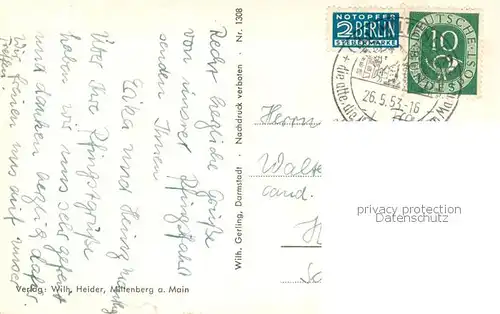 Recht herzliche Grüße
von unserer Pfingstfahrt
senden Ihnen
Erika und Heinz
Über Ihre Pfingstgrüße
haben wir uns sehr gefreut
und danken herzlich dafür
Wir freuen uns auf unser
Treffen!
Verlag: Wilh. Heider, Miltenberg a. Main
Wilh. Gerling, Darmstadt - Nachdruck verboten - Nr. 1308
NOTOPFER
2 BERLIN
STEUERMARKE
DEUTSCHE POST
10
26.5.53-16
Herrn
Walte
cand.
privacy protection
Datenschutz